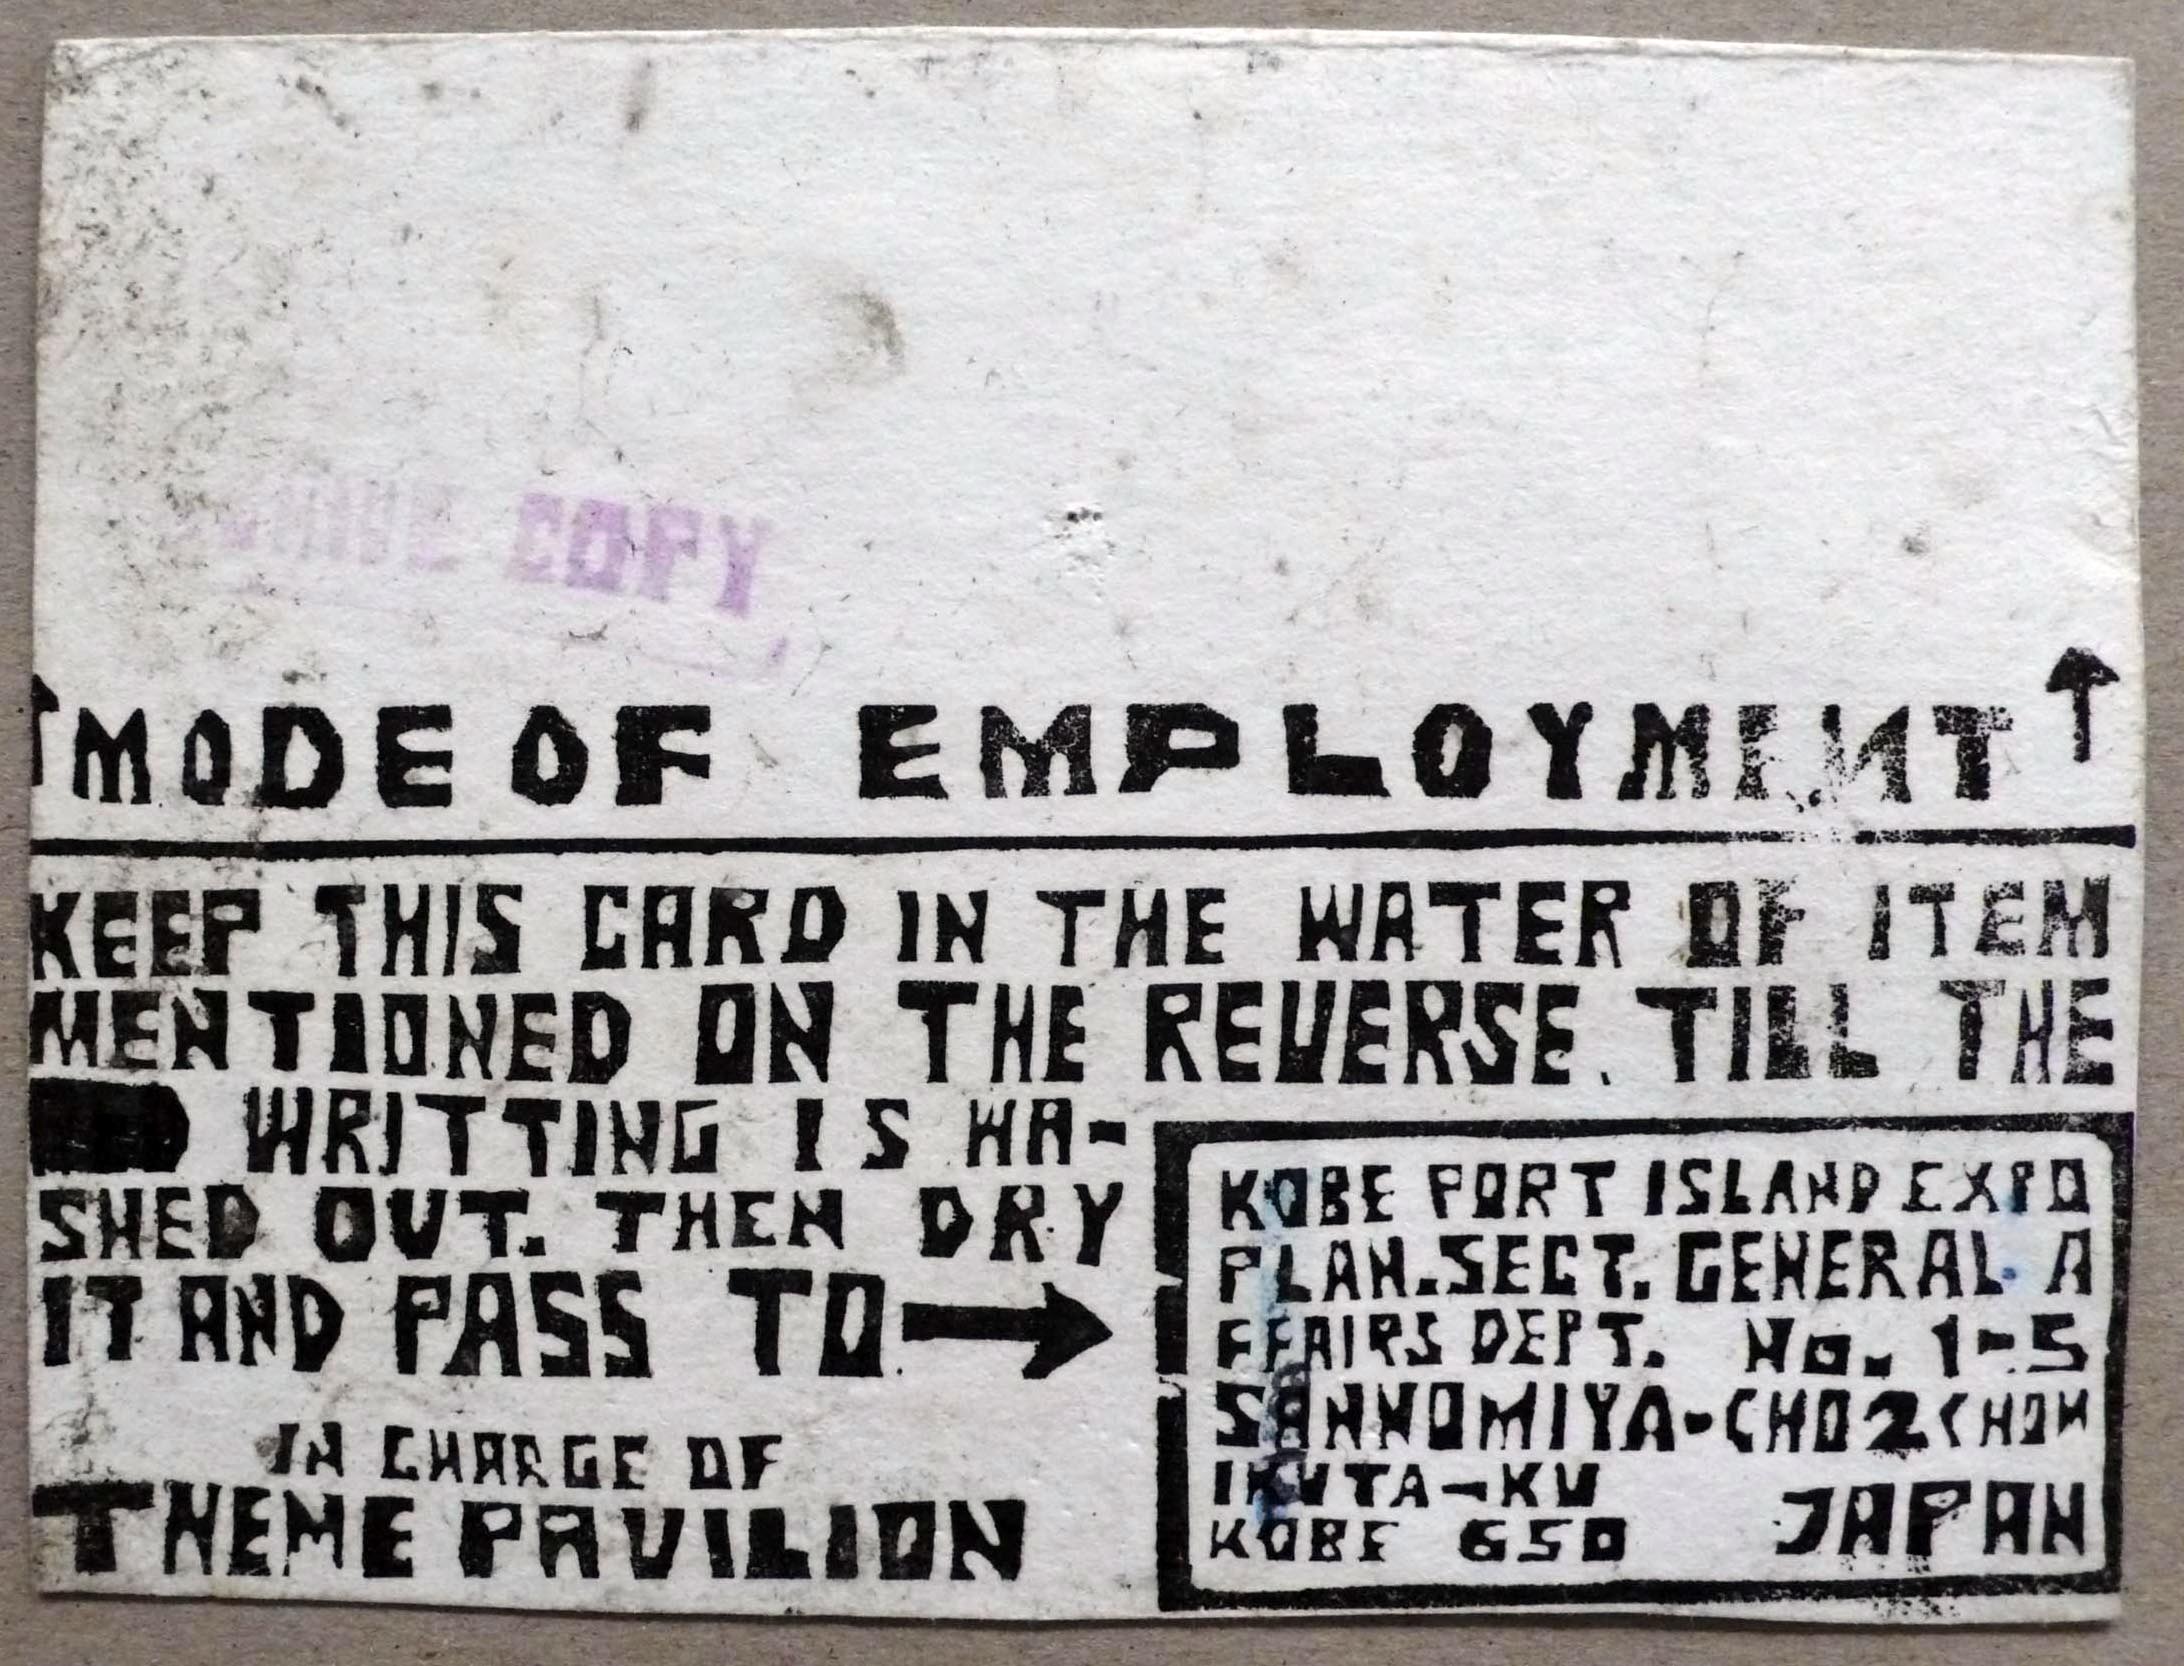 COPY
↑ MODE OF EMPLOYMENT ↑
KEEP THIS CARD IN THE WATER OF ITEM
MENTIONED ON THE REVERSE. TILL THE
WRITTING IS WA-
SHED OUT. THEN DRY
IT AND PASS TO →
IN CHARGE OF
THEME PAVILION
KOBE PORT ISLAND EXPO
PLAN. SECT. GENERAL A
FFAIRS DEPT. No. 1-5
SANNOMIYA-CHO 2 CHOM
IKUTA-KU
KOBE 650 JAPAN